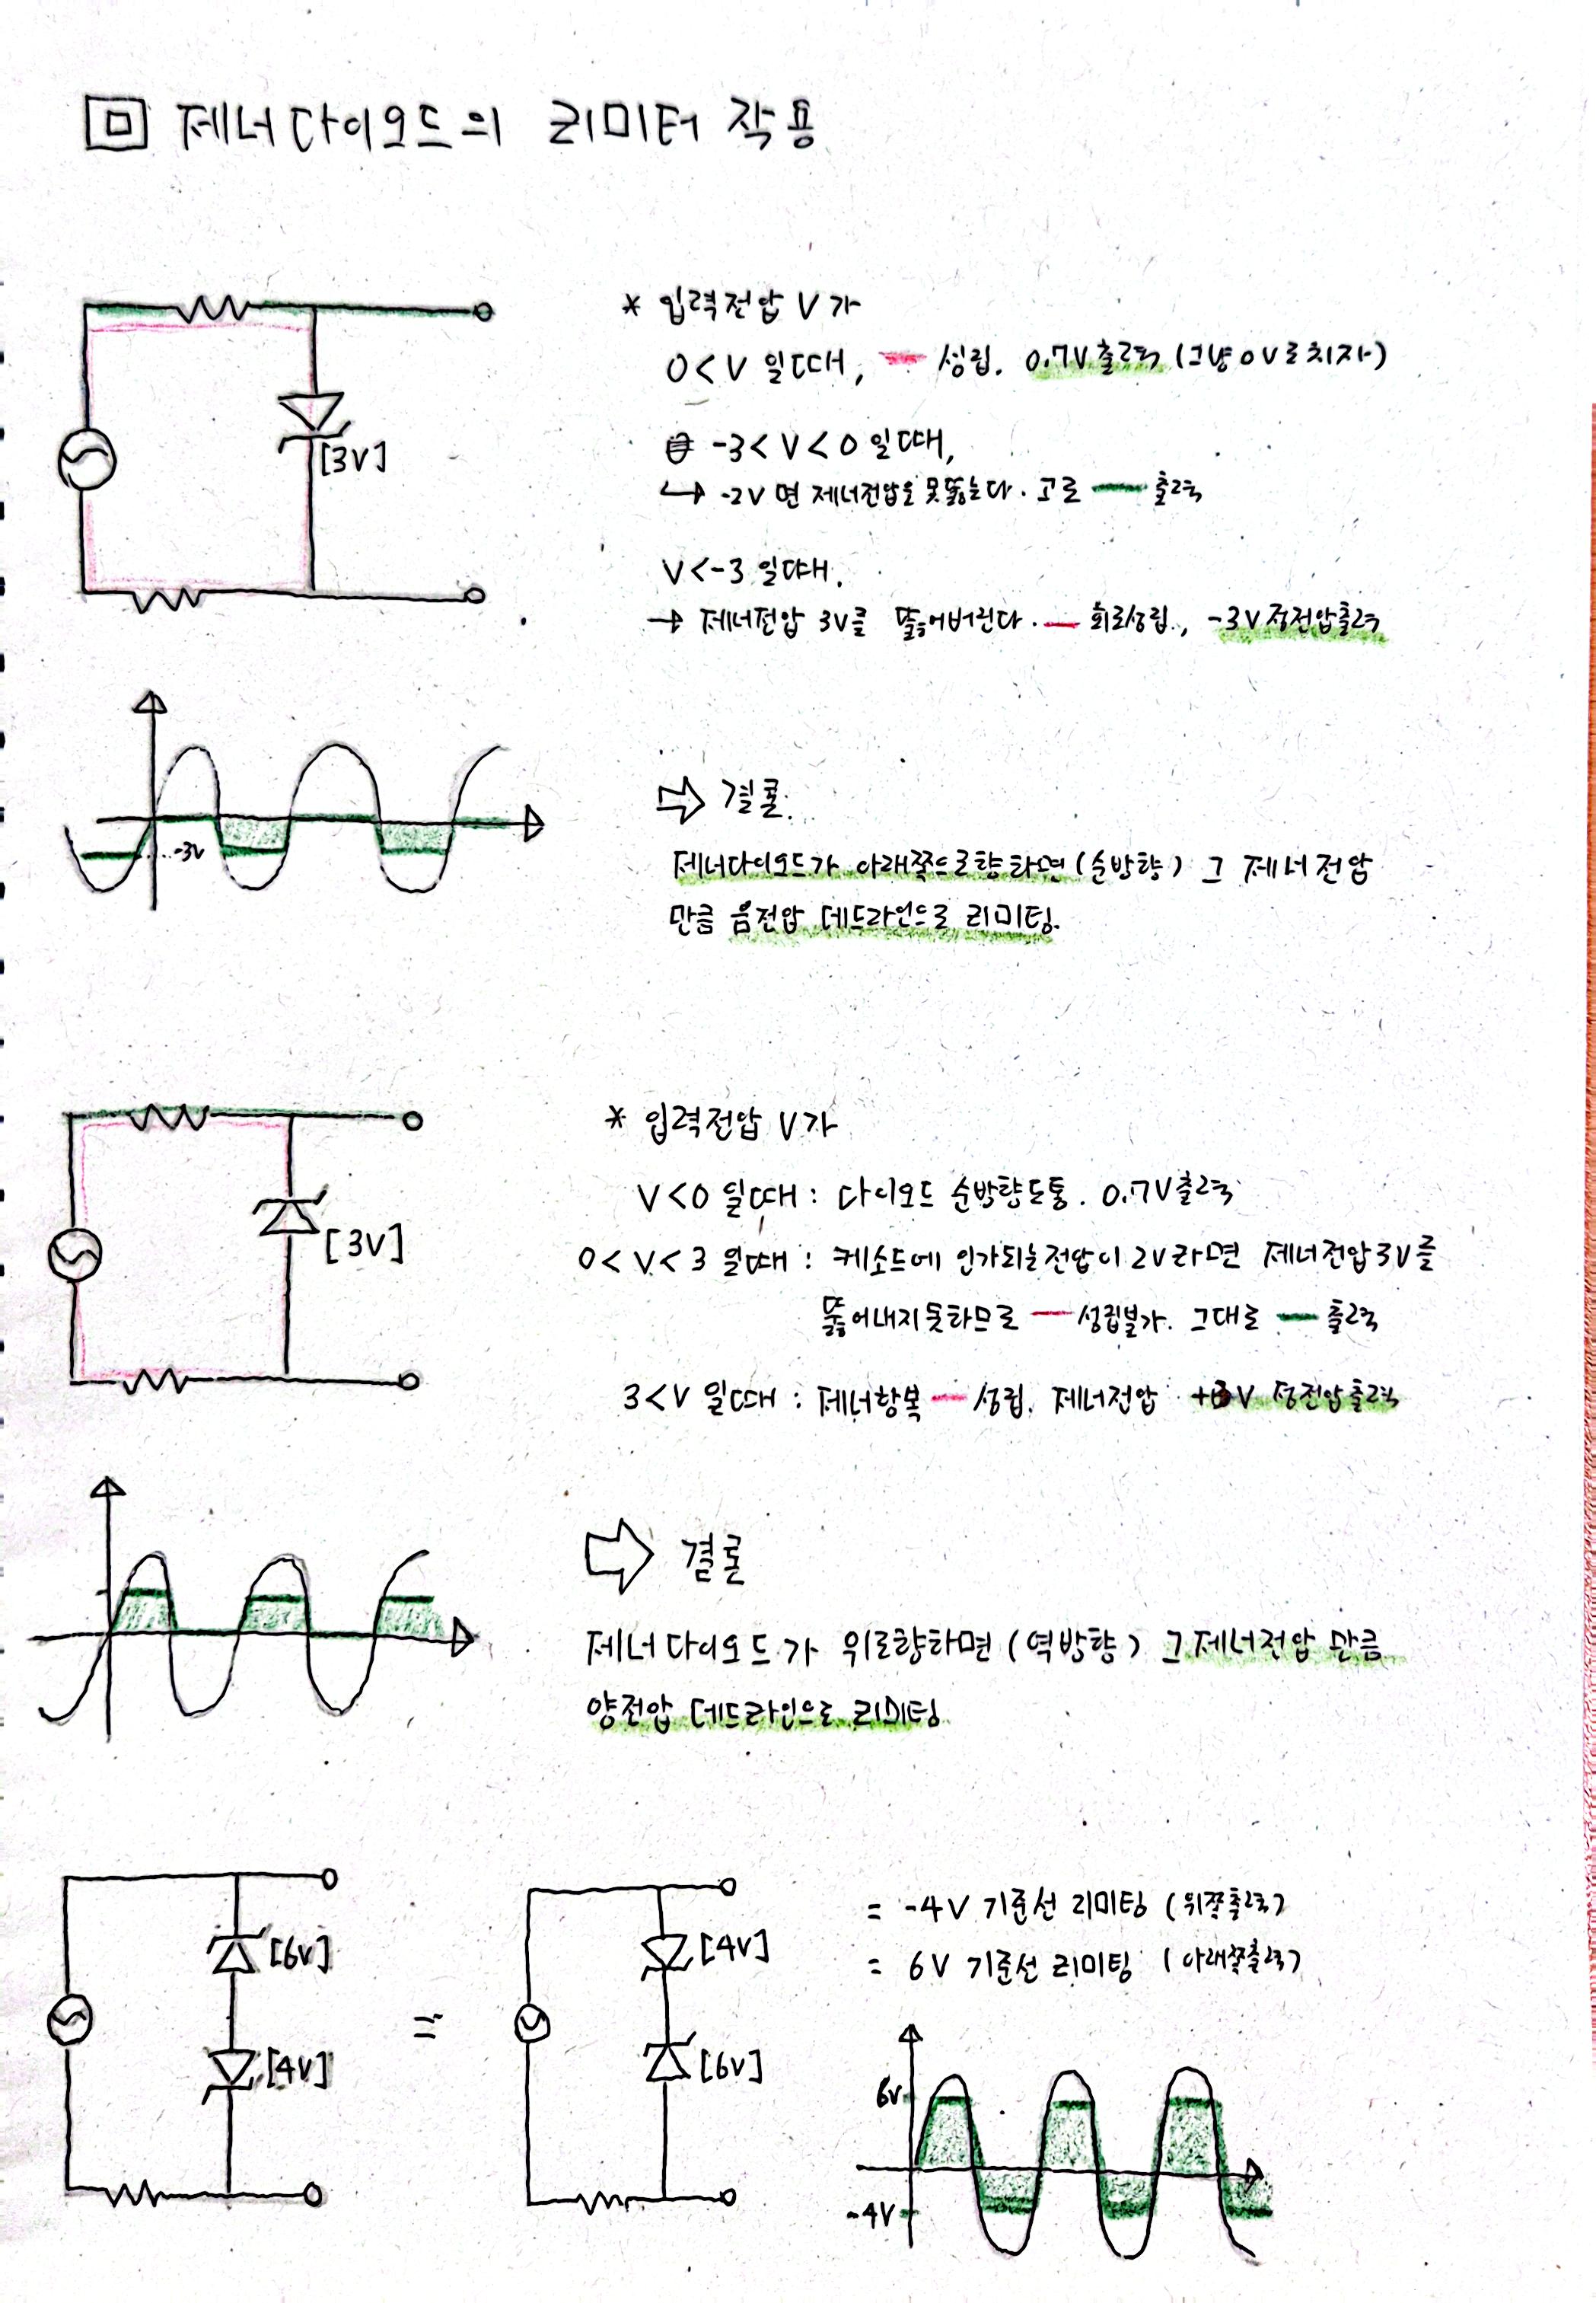 回 제너다이오드의 리미터 작용
* 입력전압 V가
0<V 일때, 성립. 0.7V출력 (그냥 0V로치자)
[3V]
-3<V<0일때,
↳ -2V면 제너전압을 못뚫는다. 고로 출력
V<-3 일때.
→ 제너전압 3V를 뚫어버린다. 회로성립., -3V 정전압출력
-3V
⇨ 결론.
제너다이오드가 아래쪽으로향하면(순방향) 그 제너전압
만큼 음전압 데드라인으로 리미팅.
* 입력전압 V가
V<0 일때: 다이오드 순방향도통. 0.7V출력
[3V]
0<V<3 일때: 케소드에 인가되는전압이 2V라면 제너전압3V를
뚫어내지못하므로 성립불가. 그대로 출력
3<V 일때: 제너항복 성립. 제너전압 +3V 정전압출력
⇨ 결론
제너다이오드가 위로향하면(역방향) 그제너전압 만큼
양전압 데드라인으로 리미팅.
[6V]
[4V]
=
[4V]
[6V]
= -4V 기준선 리미팅 (위쪽출력)
= 6V 기준선 리미팅 (아래쪽출력)
6V
-4V